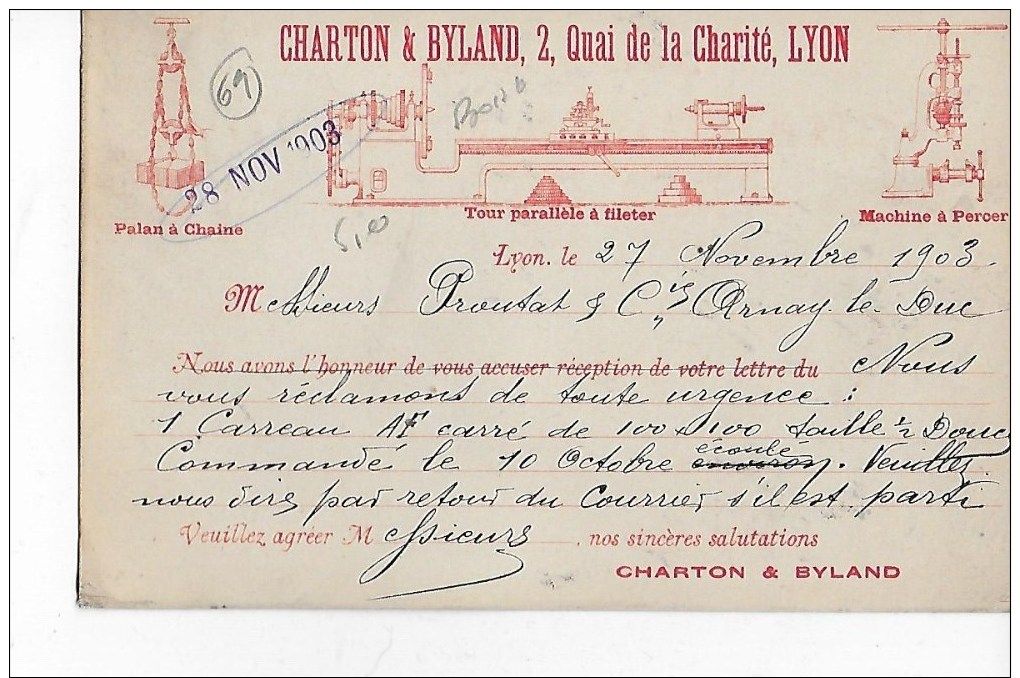 CHARTON & BYLAND, 2, Quai de la Charité, LYON
69
28 NOV 1903
Palan à Chaine
Tour parallèle à fileter
Machine à Percer
5,0
Lyon, le 27 Novembre 1903.
Messieurs Proutat & Cie Arnay-le-Duc
Nous avons l'honneur de vous accuser réception de votre lettre du Nous
vous réclamons de toute urgence :
1 Carreau AF carré de 100 x 100 taille ½ Douce
écoulé
Commandé le 10 Octobre environ. Veuillez
nous dire par retour du Courrier s'il est parti
Veuillez agréer Messieurs, nos sincères salutations
CHARTON & BYLAND